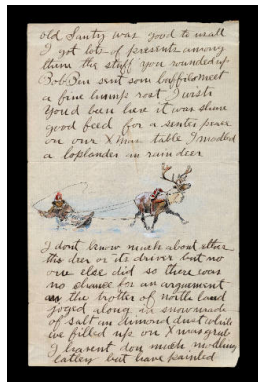 old Santy was good to us all
I got lots of presents among
them the stuff you rounded up
Bob Ben sent som buffilo meet
a fine hump rost I wish
you'd been here it was shure
good feed for a
on our Xmas table I modled
a loplander an raindeer
I dont know much about ether
the deer or its driver but no
one else did so there was
no chance for an arguement
as the trotter of north land
joged along in snow made
of salt an dimond dust while
we filled up on Xmas grub
I havent don much modling
latley but have painted